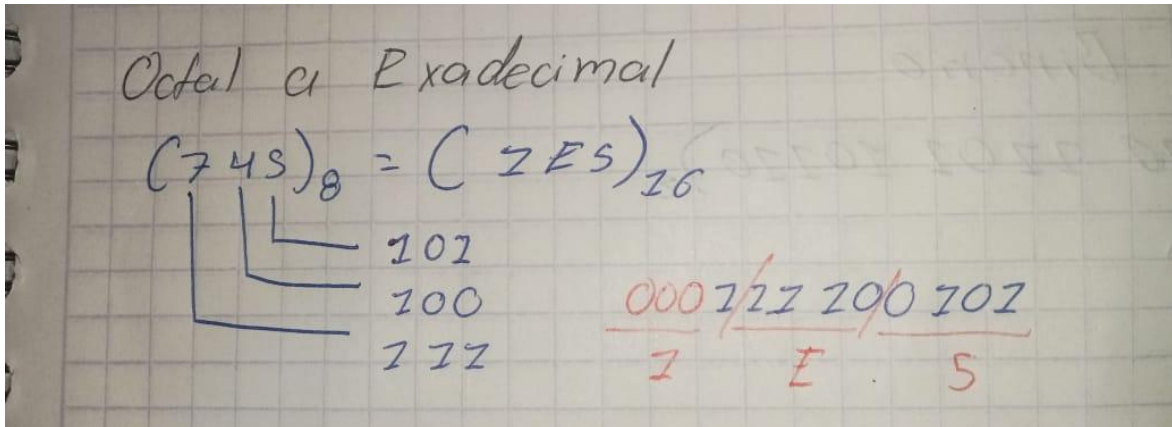 Octal a Exadecimal
(745)8 = (1E5)16
101
100
111
0001/111 100/0 101
1 E 5